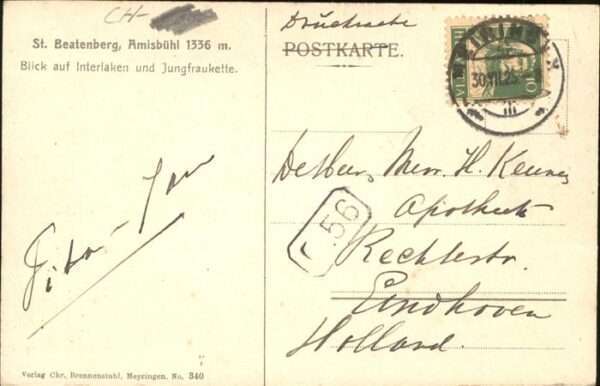 CH-
St. Beatenberg, Amisbühl 1336 m.
Blick auf Interlaken und Jungfraukette.
Drucksache
POSTKARTE.
30.VII.25
HELVETIA
10
III
H. Keunen
Apotheek
56
Rechtestr.
Eindhoven
Holland.
Verlag Chr. Brennenstuhl, Meyringen. No. 340